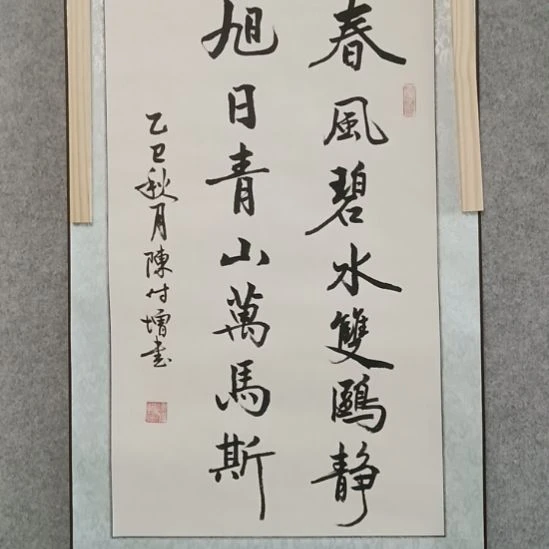 春風碧水雙鷗静
旭日青山萬馬斯
乙巳秋月陳付增書